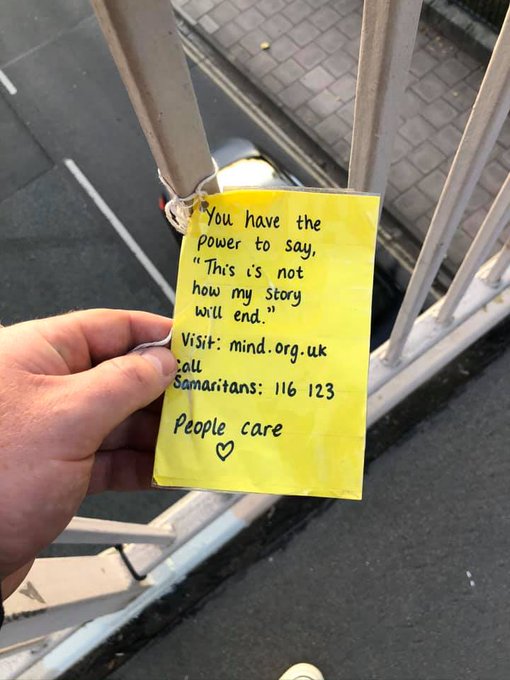 "You have the
power to say,
"This is not
how my story
will end."
Visit: mind.org.uk
call
Samaritans: 116 123
People care